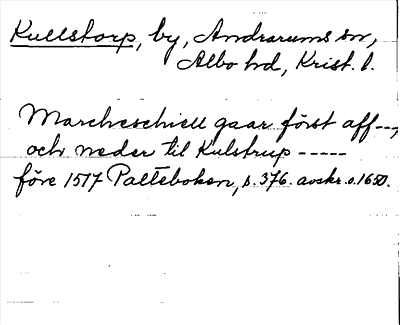 Kullstorp, by, Andrarums sn,
Albo hd, Krist. l.
Marcheschiell gaar först aff---,
och neder til Kulstrup -----
före 1517 Palteboken, s. 376. avskr. o. 1650.